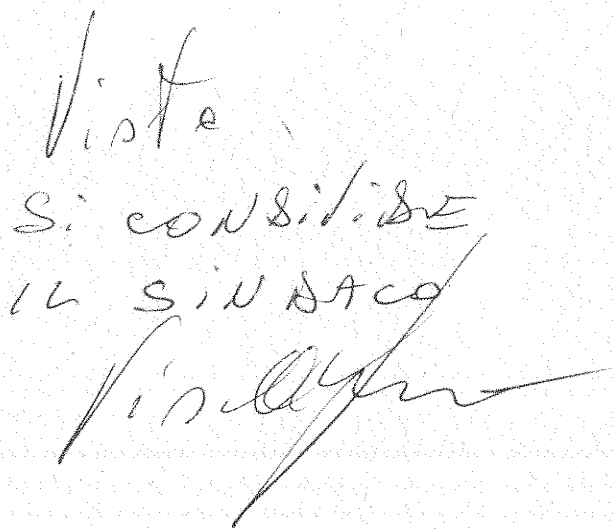 Visto
Si CONDiViDE
IL SiNDACO